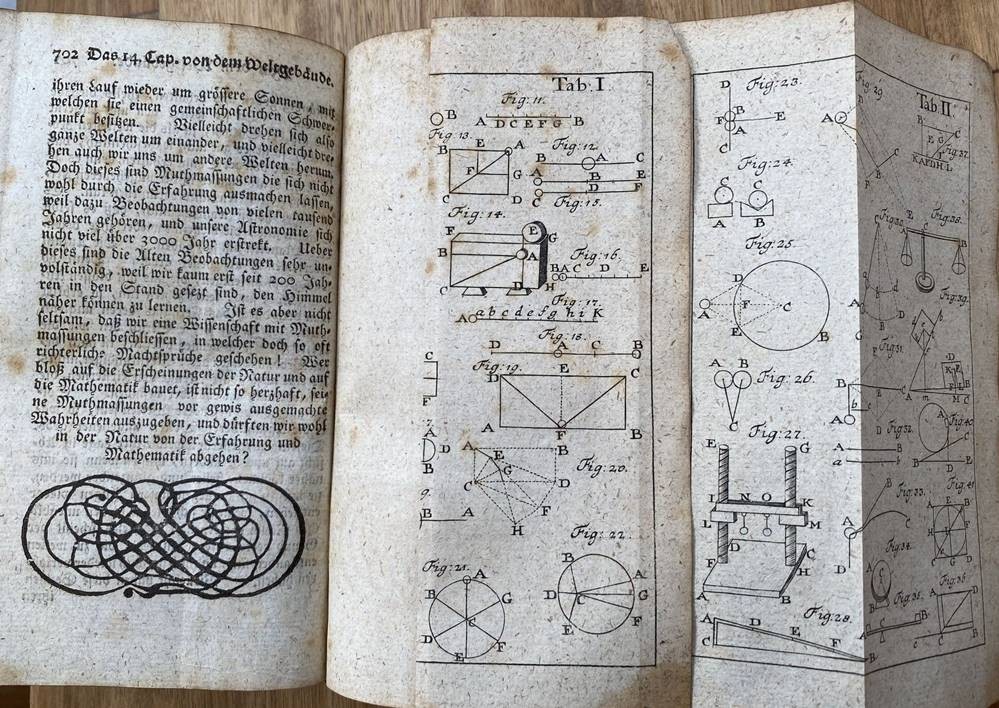 702 Das 14. Cap. von dem Weltgebäude.
ihren Lauf wieder um grössere Sonnen, mit
welchen sie einen gemeinschaftlichen Schwer-
punkt besitzen. Vielleicht drehen sich also
ganze Welten um einander, und vielleicht dre-
hen auch wir uns um andere Welten herum.
Doch dieses sind Muthmassungen die sich nicht
wohl durch die Erfahrung ausmachen lassen,
weil dazu Beobachtungen von vielen tausend
Jahren gehören, und unsere Astronomie sich
nicht viel über 3000 Jahr erstrekt. Ueber
dieses sind die Alten Beobachtungen sehr un-
volständig, weil wir kaum erst seit 200 Jah-
ren in den Stand gesezt sind, den Himmel
näher können zu lernen. Ist es aber nicht
seltsam, daß wir eine Wissenschaft mit Muth-
massungen beschliessen, in welcher doch so oft
richterliche Machtsprüche geschehen! Wer
bloß auf die Erscheinungen der Natur und auf
die Mathematik bauet, ist nicht so herzhaft, sei-
ne Muthmassungen vor gewis ausgemachte
Wahrheiten auszugeben, und dürften wir wohl
in der Natur von der Erfahrung und
Mathematik abgehen?
Tab. I
Fig. 11.
B A D C E F G B
Fig. 13.
B E A
F G
C D
Fig. 12.
B A C
A B E
C D F
Fig. 15.
Fig. 14.
F E G
B A
C D H
Fig. 16.
B A C D E
Fig. 17.
A a b c d e f g h i K
Fig. 18.
D A C B
C
F
Fig. 19.
D E C
A F B
A D
B
Fig. 20.
A B
E G
C D
F
H
B A
Fig. 21.
A
B G
C
D F
E
Fig. 22.
B A
D C G
E F
Fig. 23.
D
B
F E
A
C
Fig. 24.
C C
A B
Fig. 25.
D
A F C
E B
Fig. 26.
A B
C
Fig. 27.
E G
I N O K
L M
D C
F H
A B
Fig. 28.
A D E F
C B
Tab. II.
Fig. 29
A
Fig. 37.
B C
Fig. 30.
Fig. 38.
Fig. 39.
Fig. 31.
Fig. 32.
Fig. 40
Fig. 33.
Fig. 41
Fig. 34.
Fig. 35.
Fig. 36.